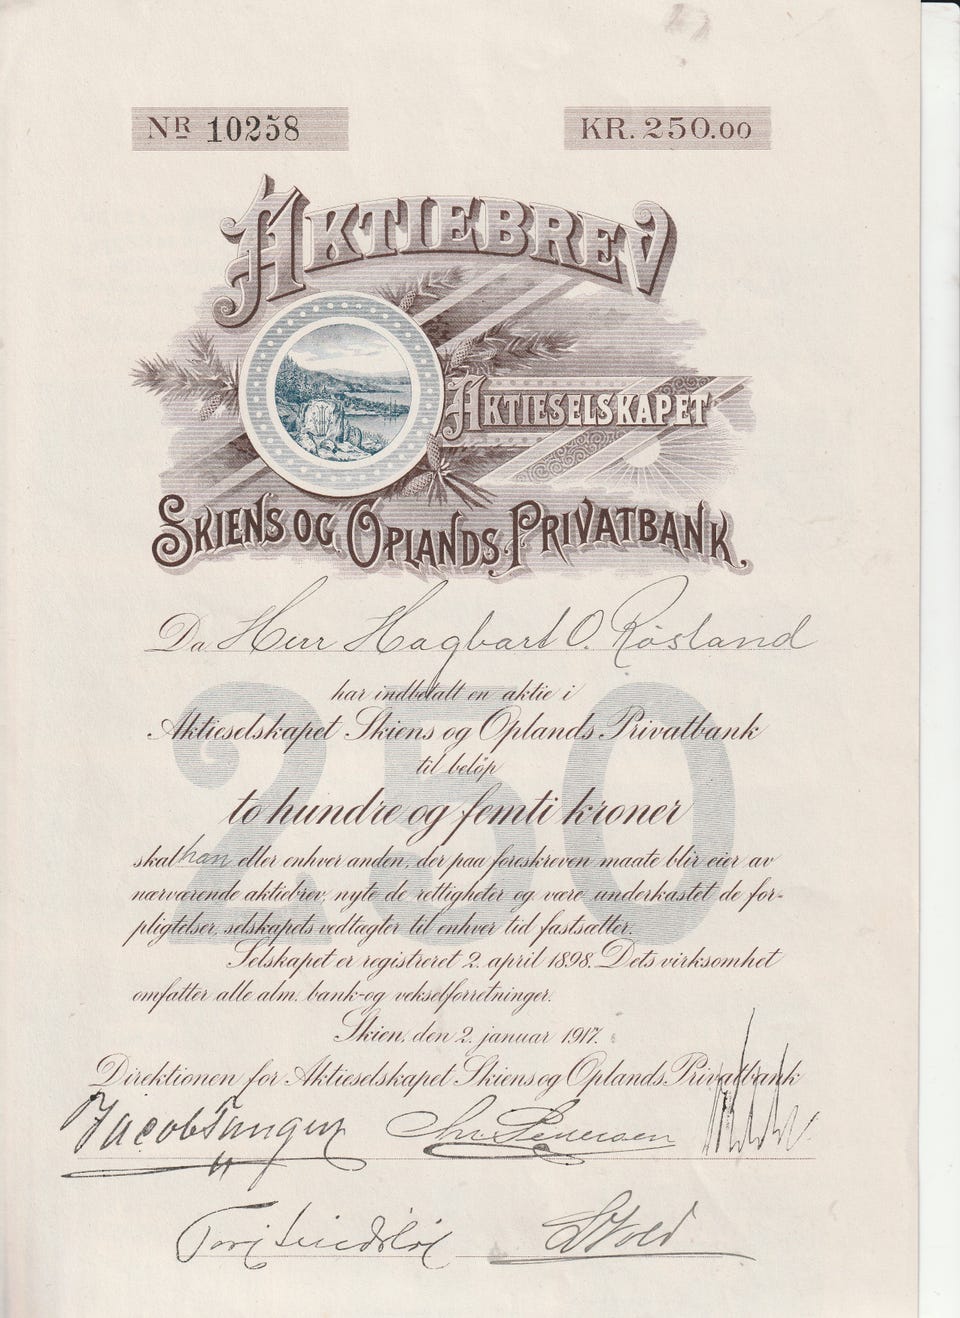 NR 10258
KR. 250.00
AKTIEBREV
AKTIESELSKAPET
SKIENS OG OPLANDS PRIVATBANK.
Da Herr Hagbart O. Røsland
har indbetalt en aktie i
Aktieselskapet Skiens og Oplands Privatbank
til beløp
to hundre og femti kroner
250
skal han eller enhver anden, der paa foreskreven maate blir eier av
nærværende aktiebrev, nyte de rettigheter og være underkastet de for-
pligtelser, selskapets vedtægter til enhver tid fastsætter.
Selskapet er registreret 2. april 1898. Dets virksomhet
omfatter alle alm. bank- og vekselforretninger.
Skien, den 2. januar 1917.
Direktionen for Aktieselskapet Skiens og Oplands Privatbank
Jacob